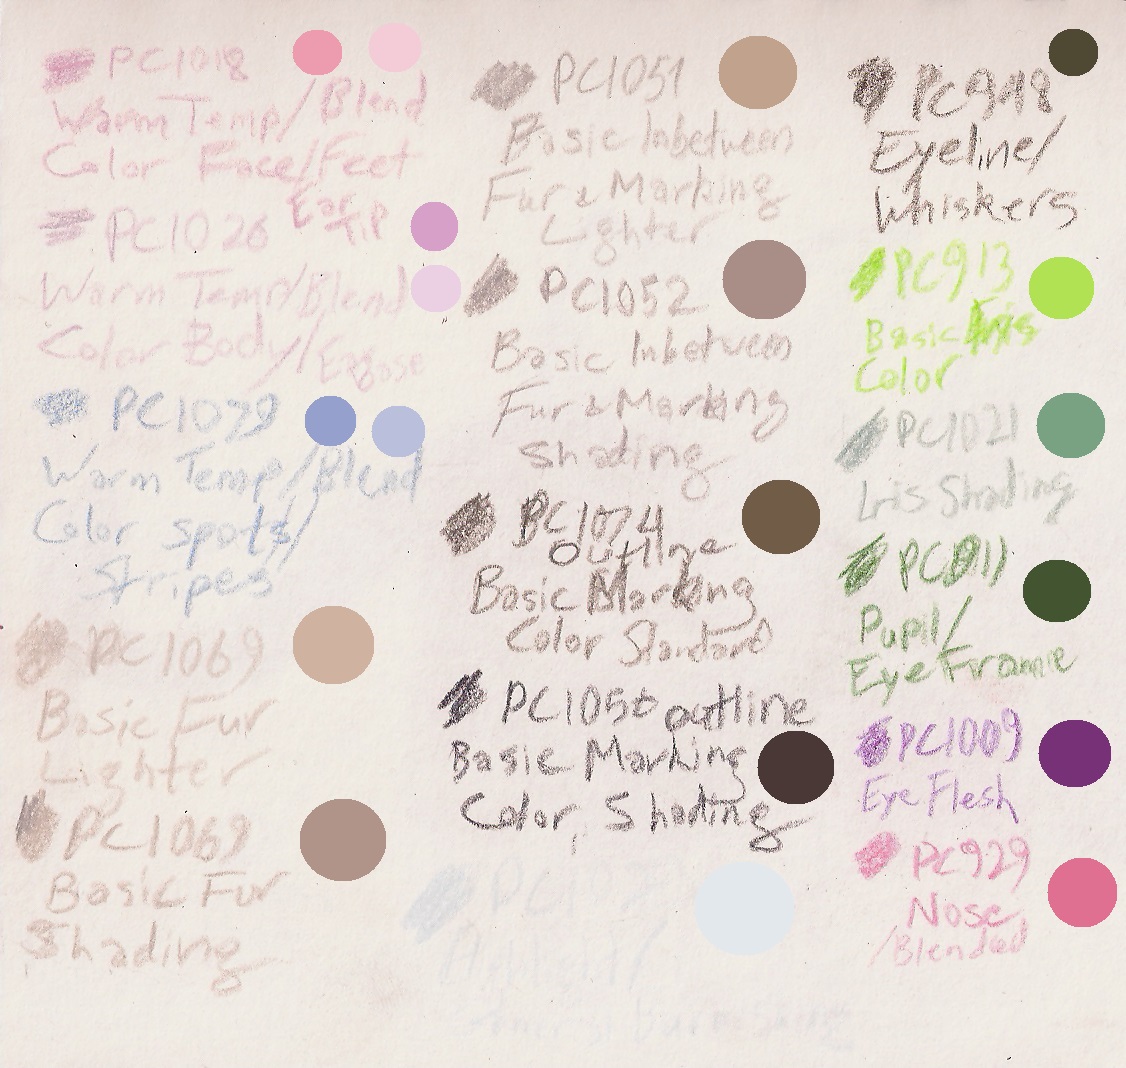 PC1018
Warm Temp/Blend
Color Face/Feet
Ear
Tip
PC1026
Warm Temp/Blend
Color Body/
PC1079
Warm Temp/Blend
Color spots/
Stripes
PC1069
Basic Fur
Lighter
PC1069
Basic Fur
Shading
PC1051
Basic Inbetween
Fur & Marking
Lighter
PC1052
Basic Inbetween
Fur & Marking
Shading
PC1074
Outline
Basic Marking
Color Standard
PC1056 outline
Basic Marking
Color Shading
PC948
Eyeline/
Whiskers
PC913
Basic Iris
Color
PC1021
Iris Shading
PC911
Pupil/
Eye Frame
PC1009
Eye Flesh
PC929
Nose
/Blended